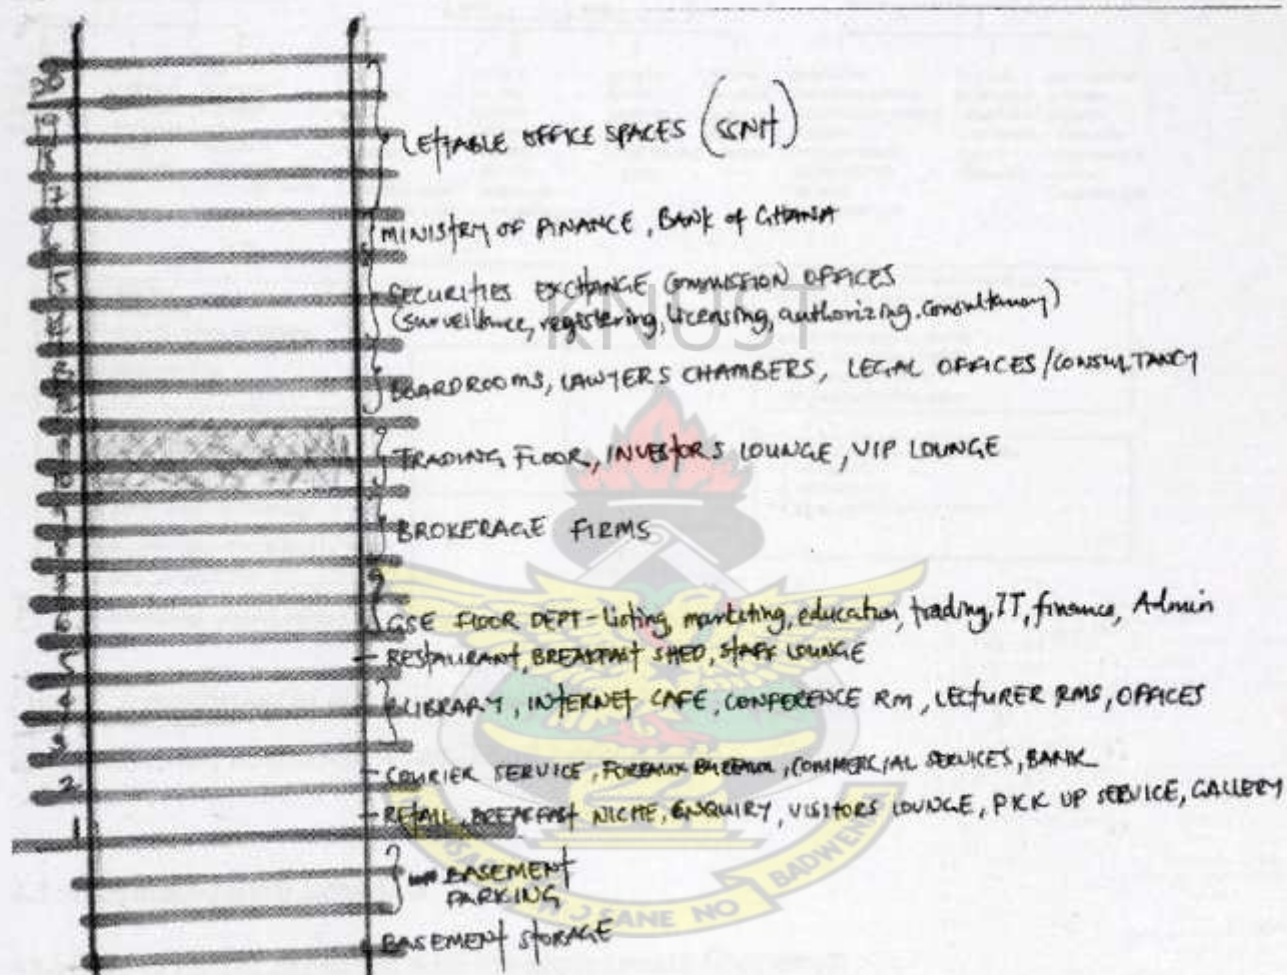 LETTABLE OFFICE SPACES (SSNIT)
MINISTRY OF FINANCE, BANK of GHANA
SECURITIES EXCHANGE COMMISSION OFFICES
(surveillance, registering, licensing, authorizing, consultancy)
KNUST
BOARDROOMS, LAWYERS CHAMBERS, LEGAL OFFICES/CONSULTANCY
TRADING FLOOR, INVESTORS LOUNGE, VIP LOUNGE
BROKERAGE FIRMS
GSE FLOOR DEPT - Listing, marketing, education, trading, IT, finance, Admin
RESTAURANT, BREAKFAST SHED, STAFF LOUNGE
LIBRARY, INTERNET CAFE, CONFERENCE RM, LECTURER RMS, OFFICES
COURIER SERVICE, FOREAUX BUREAUX, COMMERCIAL SERVICES, BANK
RETAIL, BREAKFAST NICHE, ENQUIRY, VISITORS LOUNGE, PICK UP SERVICE, GALLERY
BASEMENT
PARKING
BASEMENT STORAGE
7
5
9
8
7
6
5
4
3
2
1
SANE NO
BADWEN